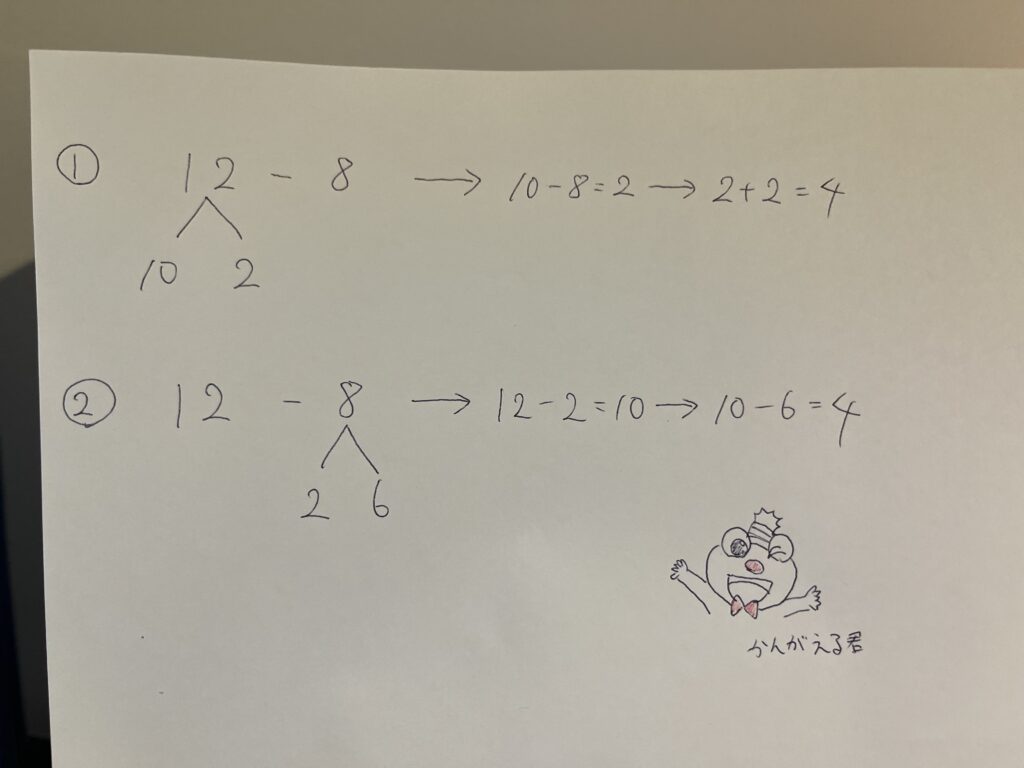 ① 12 - 8 → 10-8=2 → 2+2=4
10 2
② 12 - 8 → 12-2=10 → 10-6=4
2 6
かんがえる君